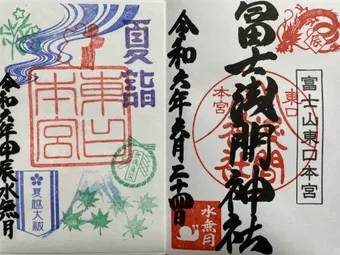 夏詣
東口本宮
令和六年甲辰水無月
夏越大祓
冨士浅間神社
東口
本宮
富士山東口本宮
令和六年六月二十四日
水無月
辰